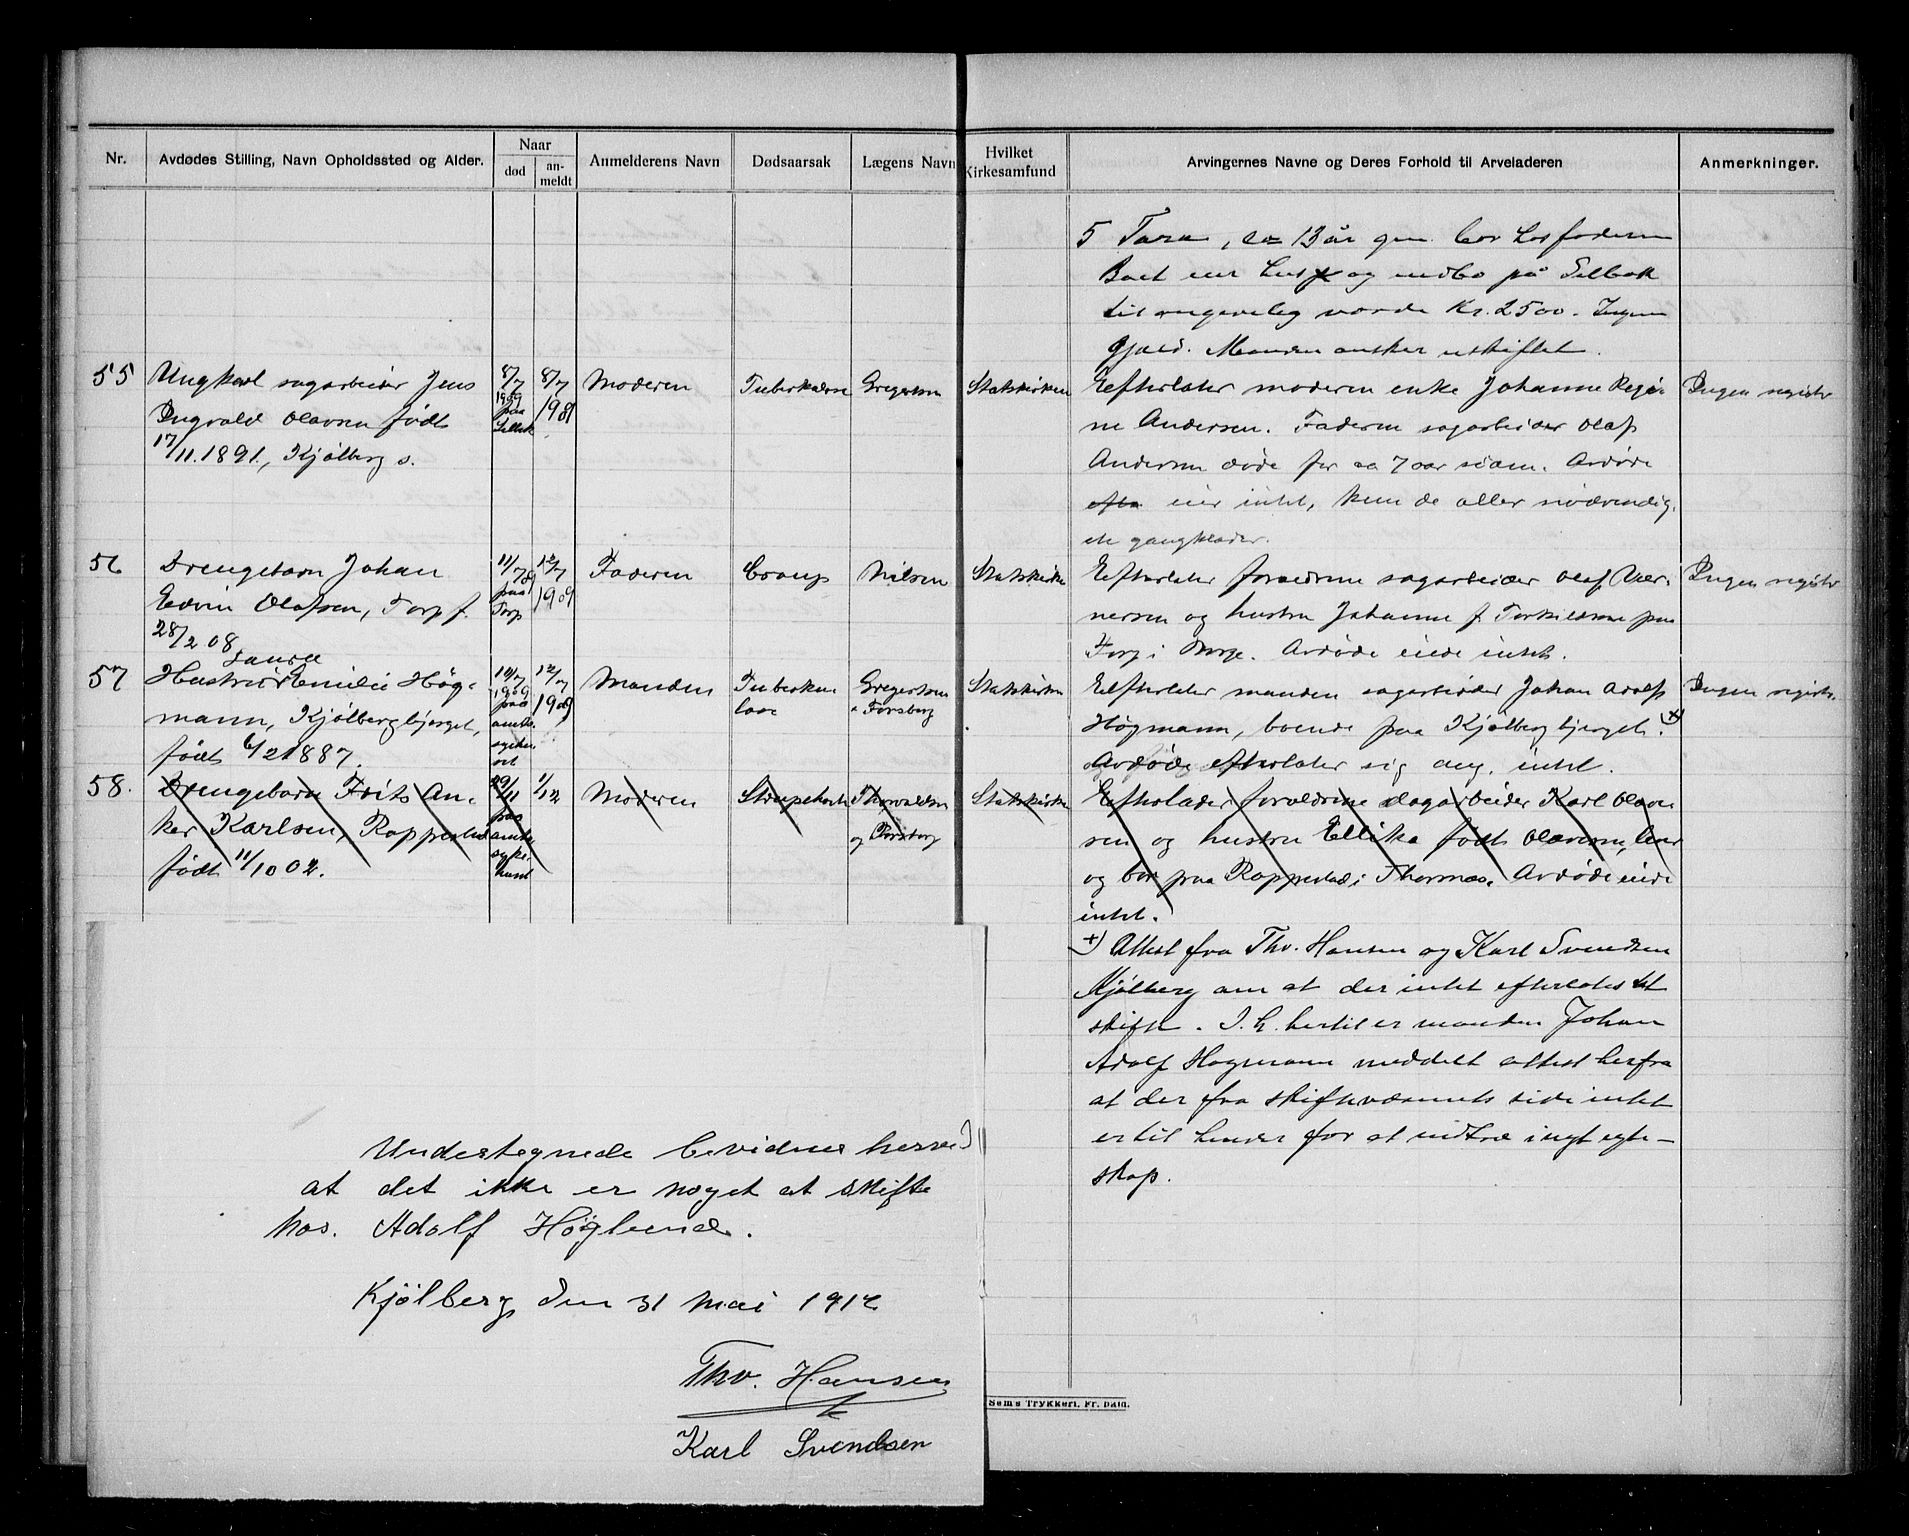 Nr.
Avdødes Stilling, Navn Opholdssted og Alder.
Naar
død
an-
meldt
Anmelderens Navn
Dødsaarsak
Lægens Navn
Hvilket
Kirkesamfund
Arvingernes Navne og Deres Forhold til Arveladeren
Anmerkninger.
5 Tora, ca 13 år gm. bor hos faderen
Boet eier hus og indbo på Selbak
til rimgevelig værdi Kr. 2500. Ingen
gjæld. Manden ønsker uskiftet.
55
Ungkarl sagarbeider Jens
Ingvald Olavsen født
17/11.1891, Kjølberg s.
8/7
1909
paa
Selbak
8/7
1909
Moderen
Tuberkulose
Gregersen
Statskirken
Efterlater moderen enke Johanne Regi-
ne Andersen. Faderen sagarbeider Olaf
Andersen døde for ca 7 aar siden. Avdøde
efte eier intet, kun de aller nødvendig-
ste gangklæder.
Ingen registr
56
Drengebarn Johan
Edvin Olafsen, Torp f.
28/2 08
11/7 09
paa
Torp
12/7
1909
Faderen
Croup
Nilsen
Statskirke
Efterlater forældrene sagarbeider Olaf Wer-
nersen og hustru Johanne f. Torkildsen paa
Torp i Borge. Avdøde eiede intet.
Ingen registr
57
Laura
Hustru Emilie Høg-
mann, Kjølbergbjerget,
født 6/2 1887.
10/7
1909
paa
amts
syke
hset
12/7
1909
Manden
Tuberku
lose
Gregersen
& Forsberg
Statskirken
Efterlater manden sagarbeider Johan Adolf
Høgmann, boende paa Kjølbergbjerget. +)
Avdøde efterlater sig ang. intet.
Ingen registr.
58.
Drengebarn Frits An-
ker Karlsen, Roppestad
født 11/10 02.
29/11
paa
amts
syke
huset
1/12
Moderen
Strupehoste
Thorvaldsen
og Forsberg
Statskirke
Efterlader forældrene dagarbeider Karl Olavs
sen og hustru Ellika født Olavsen, lever
og bor paa Roppestad i Thorsnes. Avdøde eiede
intet.
+) Attest fra Thv. Hansen og Karl Svendsen
Kjølberg om at der intet efterlates til
skifte. I h. hertil er manden Johan
Adolf Hogmann meddelt attest herfra
at der fra skiftevæsenets side intet
er til hinder for at indtræ i nyt egte-
skap.
Undertegnede bevidner herved
at det ikke er noget at skifte
hos. Adolf Høglund.
Kjølberg den 31 Mai 1912
Thv. Hansen
Karl Svendsen
Sems Trykkeri, Fr. hald.